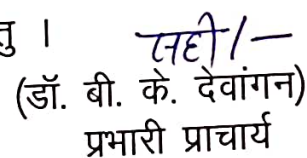 तु ।
सही/—
(डॉ. बी. के. देवांगन)
प्रभारी प्राचार्य